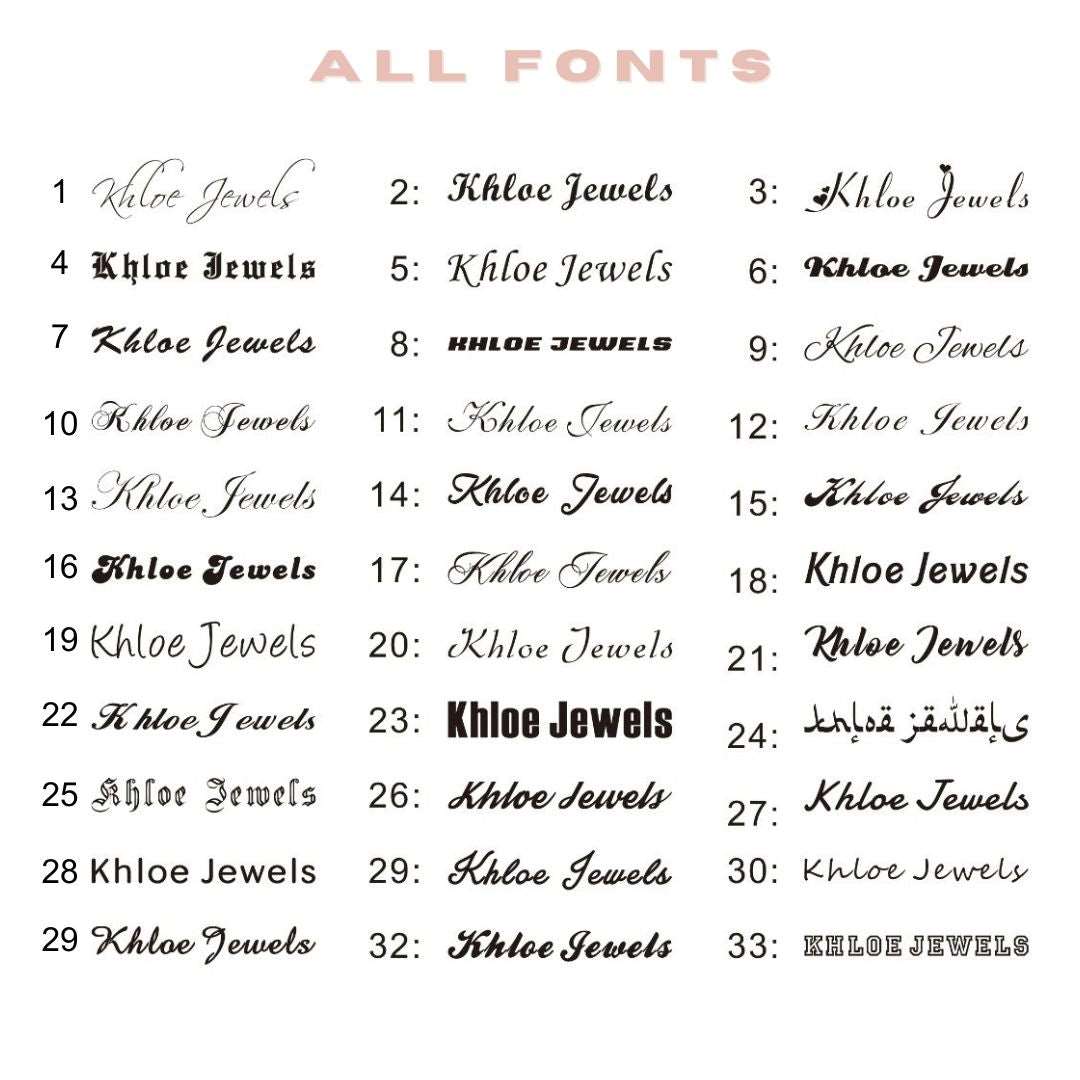 ALL FONTS
1 Khloe Jewels 2: Khloe Jewels 3: Khloe Jewels
4 Khloe Jewels 5: Khloe Jewels 6: Khloe Jewels
7 Khloe Jewels 8: KHLOE JEWELS 9: Khloe Jewels
10 Khloe Jewels 11: Khloe Jewels 12: Khloe Jewels
13 Khloe Jewels 14: Khloe Jewels 15: Khloe Jewels
16 Khloe Jewels 17: Khloe Jewels 18: Khloe Jewels
19 Khloe Jewels 20: Khloe Jewels 21: Khloe Jewels
22 Khloe Jewels 23: Khloe Jewels 24: khloe jewels
25 Khloe Jewels 26: Khloe Jewels 27: Khloe Jewels
28 Khloe Jewels 29: Khloe Jewels 30: Khloe Jewels
29 Khloe Jewels 32: Khloe Jewels 33: KHLOE JEWELS